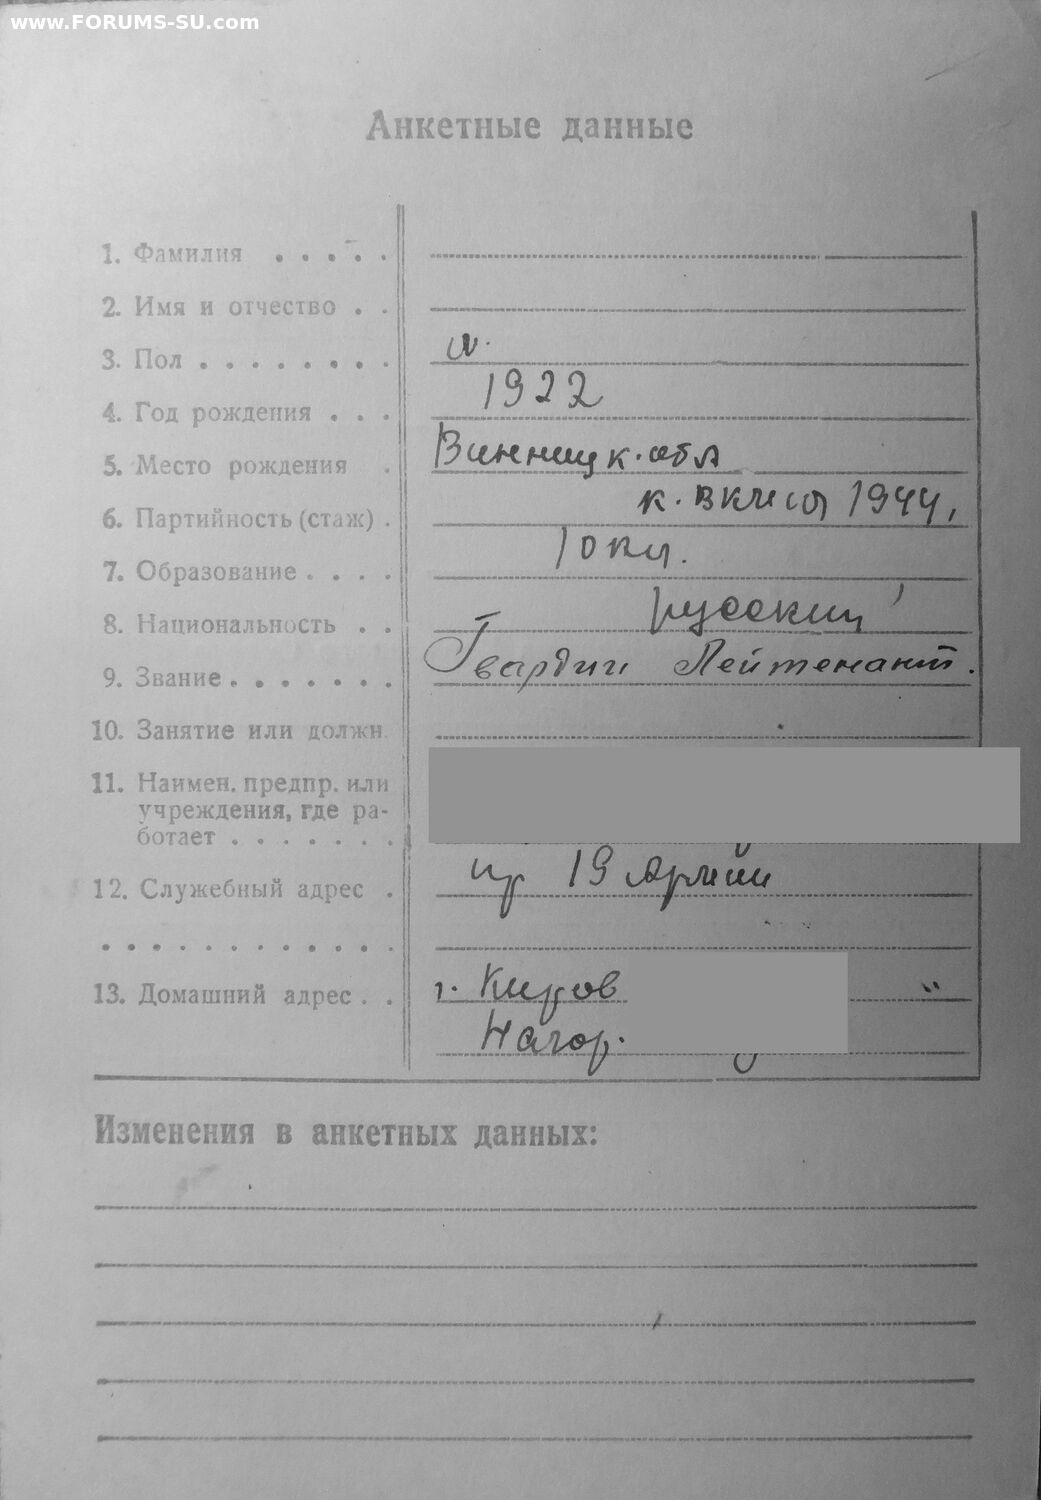 www.FORUMS-SU.com
Анкетные данные
1. Фамилия . . . . .
2. Имя и отчество . .
3. Пол . . . . . . . . м.
4. Год рождения . . . 1922
5. Место рождения . Винницк. обл
6. Партийность (стаж) . к. ВКП(б) 1944,
7. Образование . . . . 10 кл.
8. Национальность . . русский
9. Звание . . . . . . . Гвардии Лейтенант.
10. Занятие или должн.
11. Наимен. предпр. или
учреждения, где ра-
ботает . . . . . . .
12. Служебный адрес . 19 Армии
. . . . . . . . . . . .
13. Домашний адрес . . г. Киров
Нагор.
Изменения в анкетных данных: